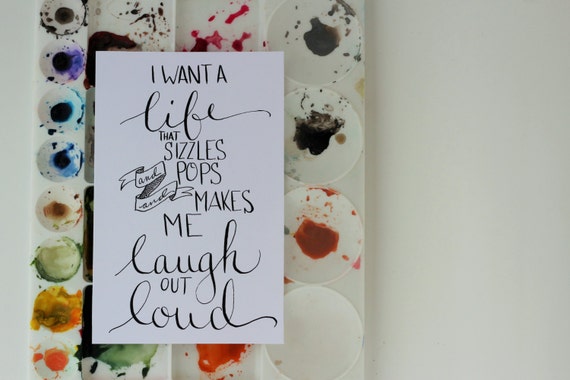 I WANT A
life
THAT
SIZZLES
and POPS
and MAKES
ME
laugh
OUT
loud